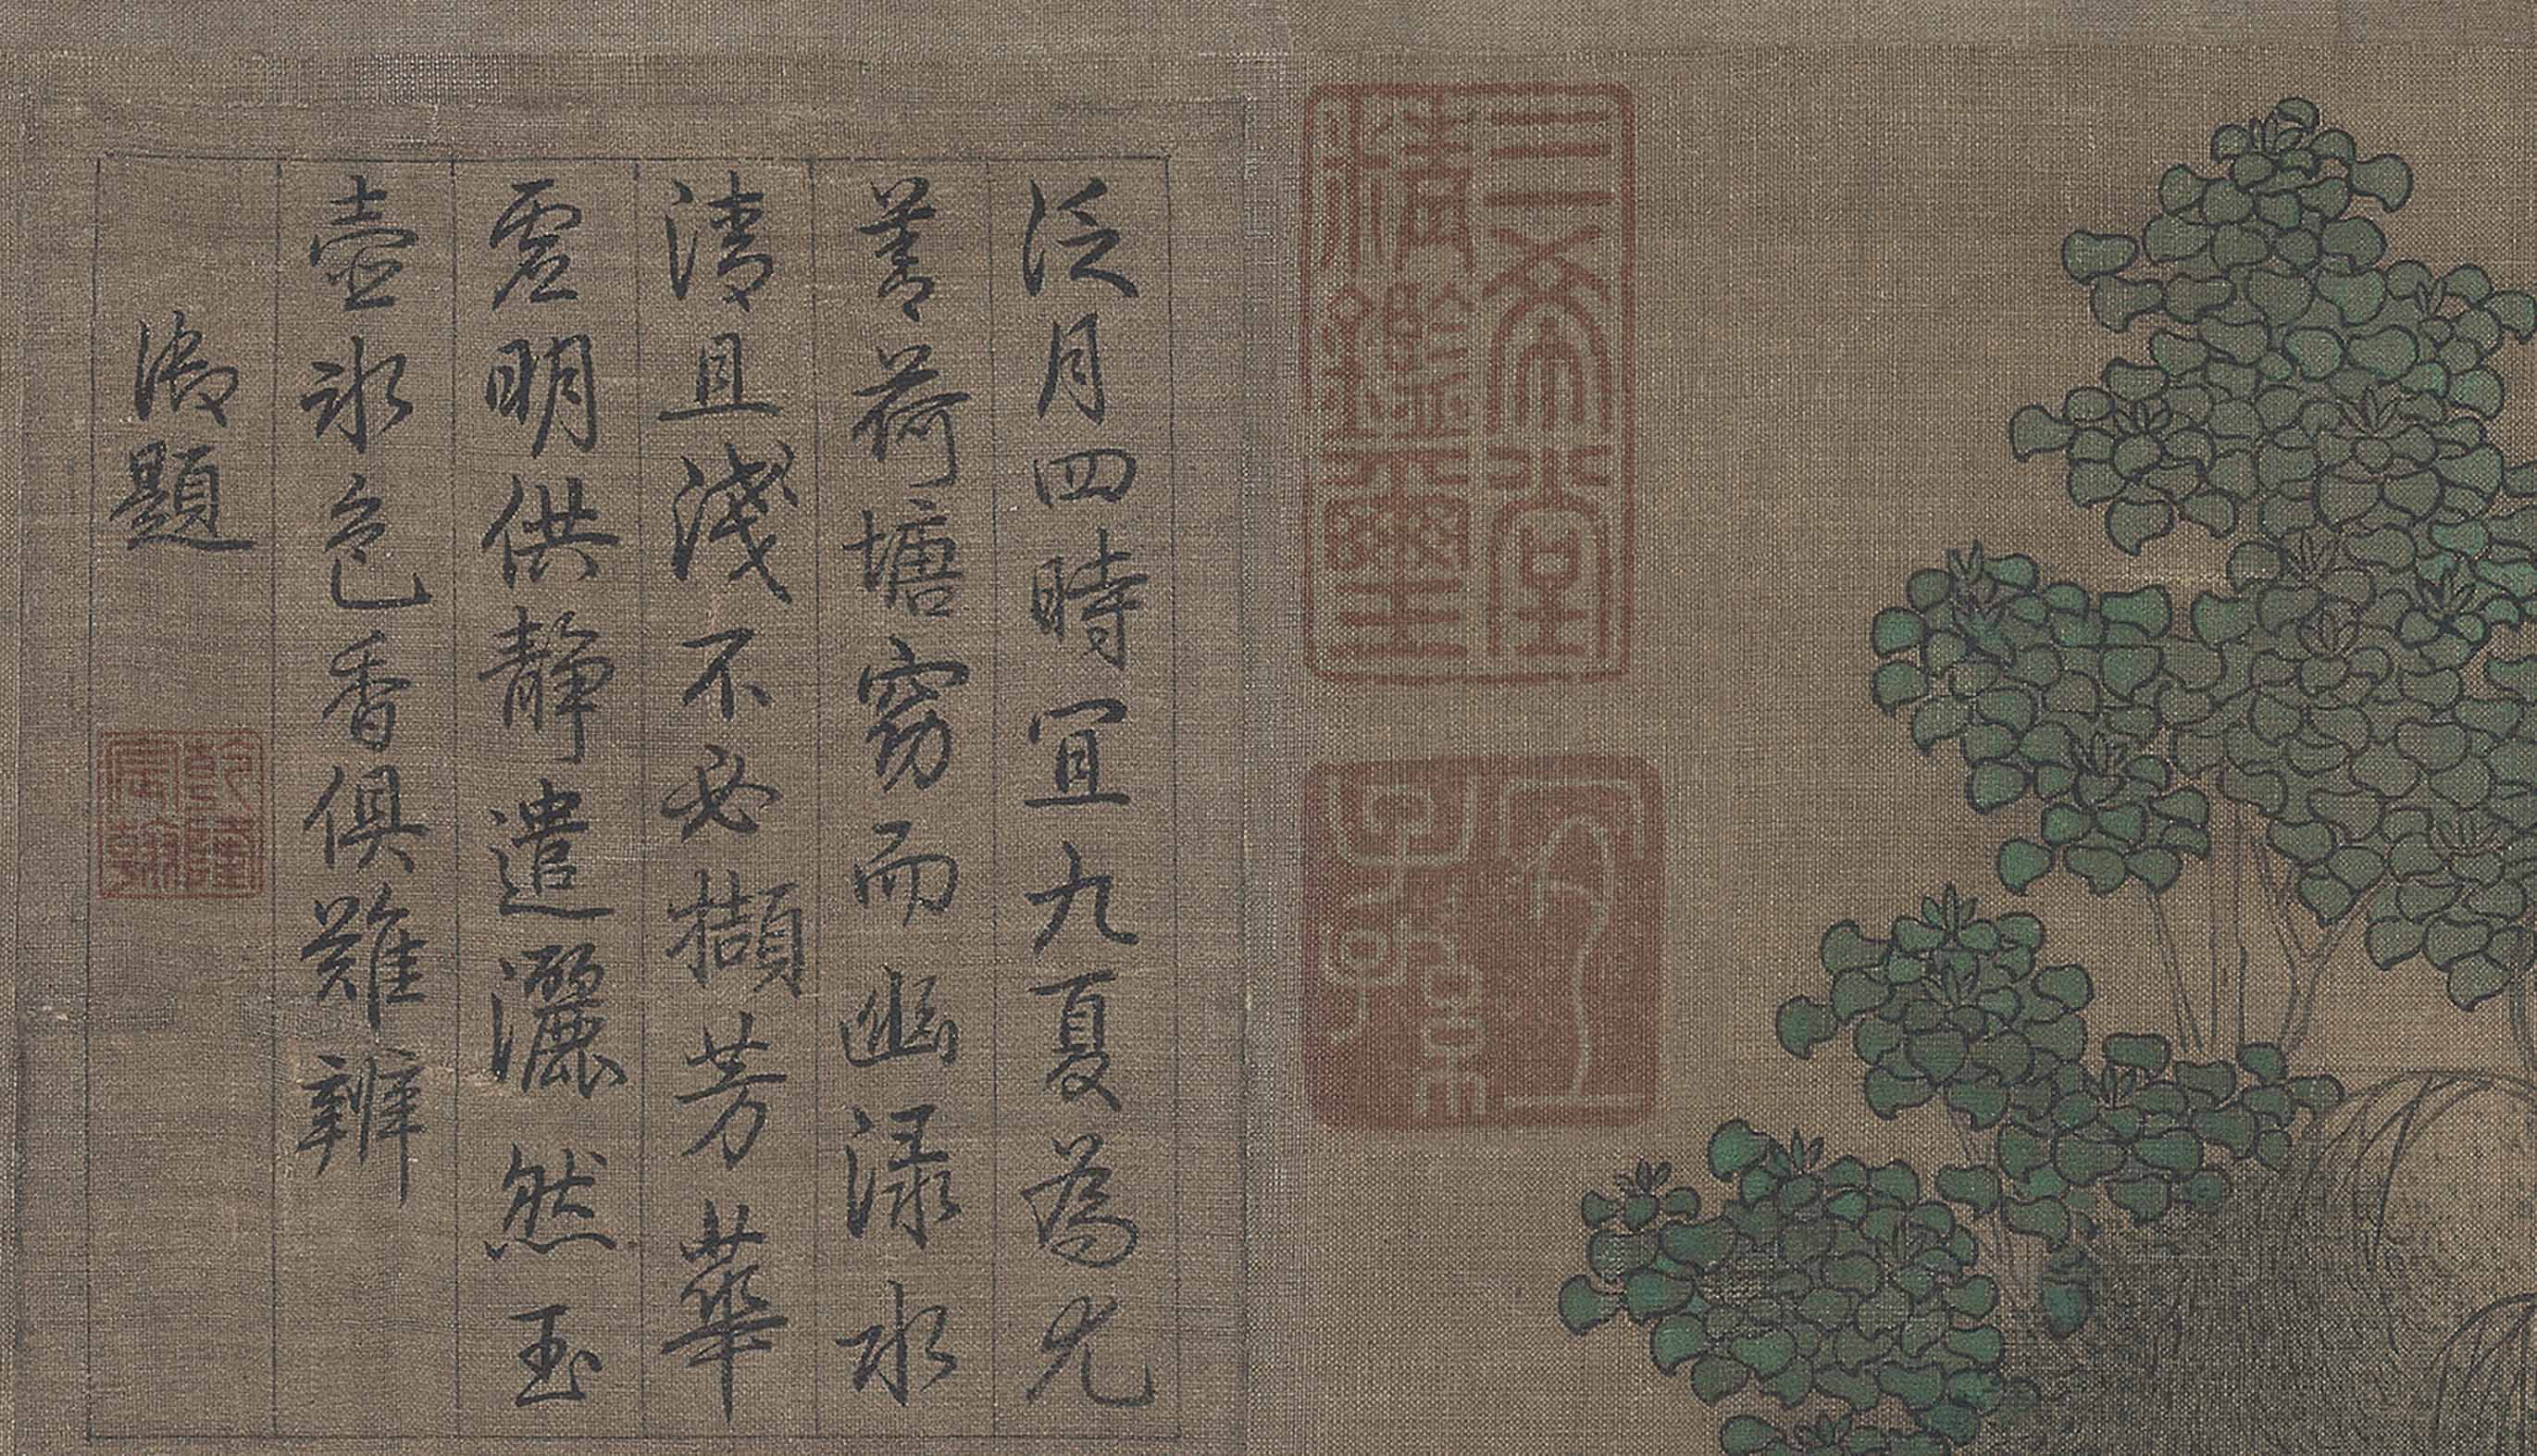 三希堂
精鑑璽
宜
子孫
泛月四時宜九夏為尤
善荷塘窈而幽渌水
清且淺不必擷芳華
虛明供靜遣灑然玉
壺冰色香俱難辨
御題
乾隆
宸翰